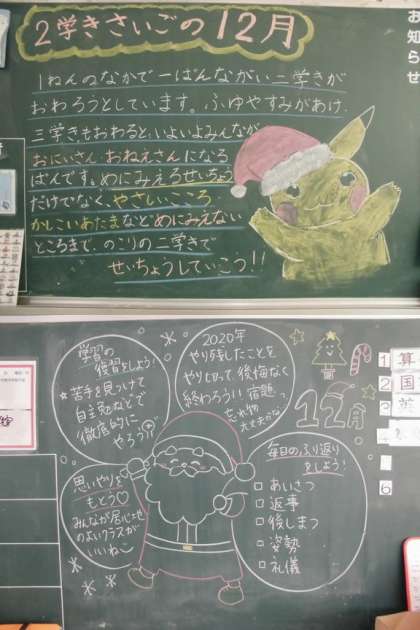 お知らせ
2学きさいごの12月
1ねんのなかで一ばんながい二学きが
おわろうとしています。ふゆやすみがあけ、
三学きもおわると、いよいよみんなが
おにいさん、おねえさんになる
ばんです。めにみえるせいちょう
だけでなく、やさしいこころ、
かしこいあたまなどめにみえない
ところまで、のこりの二学きで
せいちょうしていこう!!
学習の
復習をしよう!
★苦手を見つけて
自主勉などで
徹底的に
やろう
2020年
やり残したことを
やり切って、後悔なく
終わろう!!宿題、
忘れ物
大丈夫かな
12月
思いやりを
もとう♡
みんなが居心地
のよいクラスが
いいねこ
毎日のふり返り
をしよう!
□あいさつ
□返事
□後しまつ
□姿勢
□礼儀
1 算
2 国
3
4
6